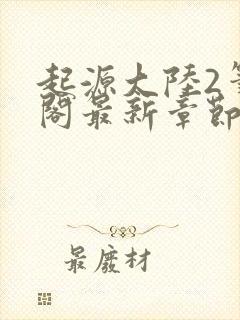 起源大陸2筆
閣最新章節
最廢材